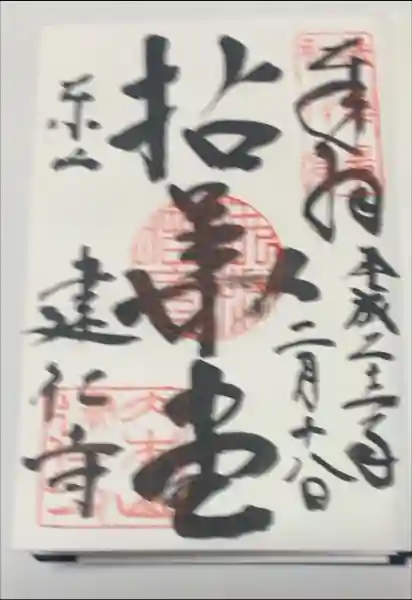 奉拝
平成二十二年
二月十八日
拈華堂
東山
建仁寺